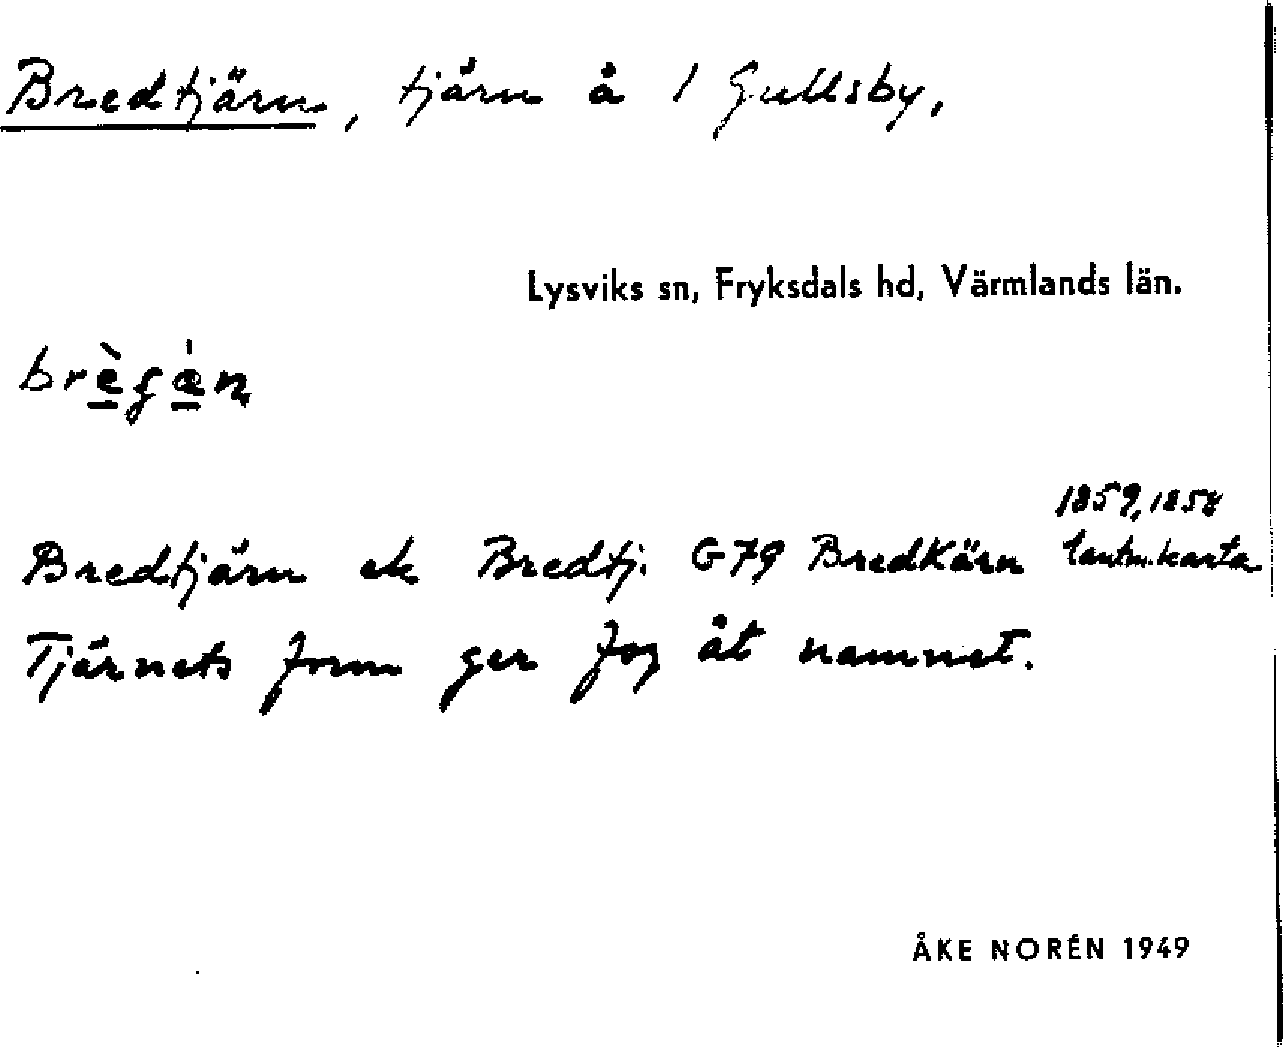 Bredtjärn, tjärn å 1 Gullsby,
Lysviks sn, Fryksdals hd, Värmlands län.
brègæn
1859, 1858
Bredtjärn ek Bredtj. G79 BredKärn lantm.karta
Tjärnets form ger fog åt namnet.
ÅKE NORÉN 1949